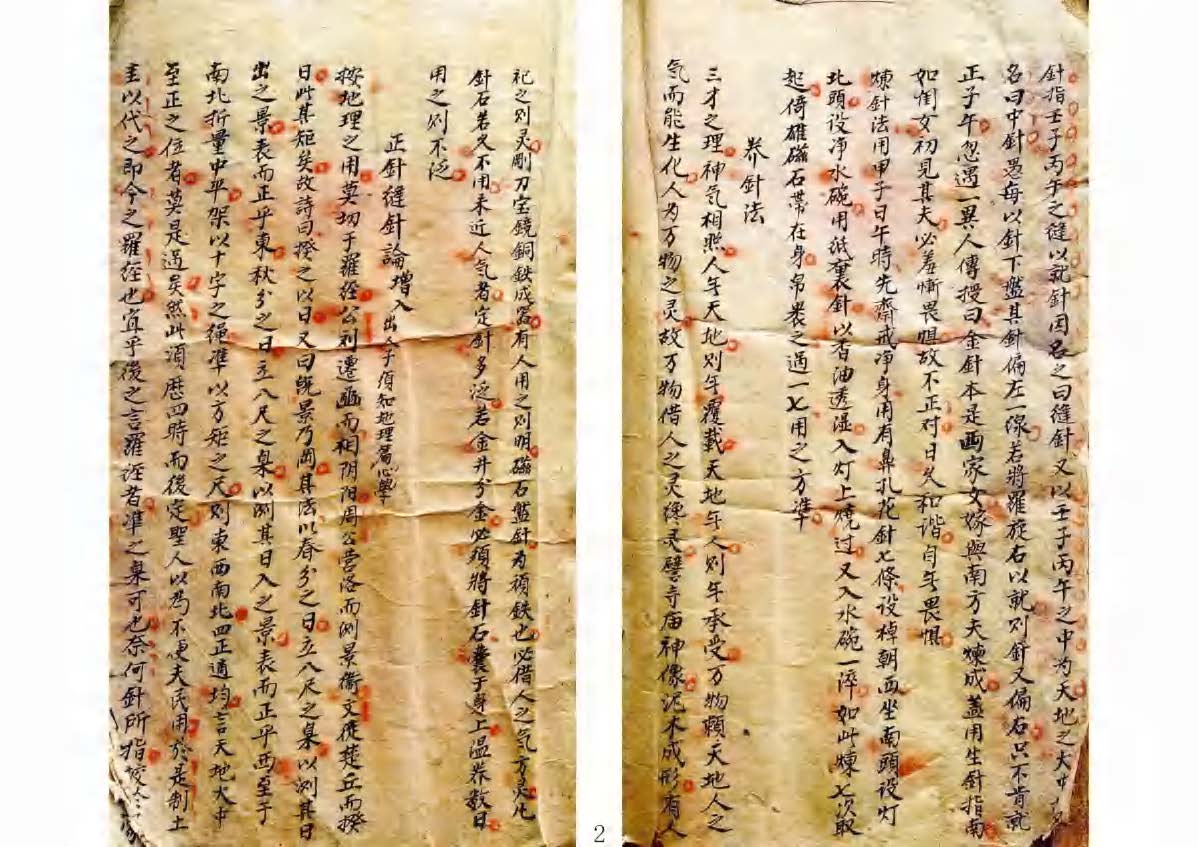 針指壬子丙午之縫以就針因名之曰縫針又以壬子丙午之中为天地之大中
名曰中針愚每以針下盤其針偏左一線若將羅旋右以就则針又偏右只不肯就
正子午忽遇一異人傳授曰金針本是西家女嫁與南方夫煉成盖用生針指南
如闺女初見其夫必羞慚畏惧故不正对日久和谐自无畏惧
煉針法用甲子日午時先齋戒净身用有鼻孔花針七條设棹朝西坐南頭设灯
北頭设净水碗用纸裹針以香油透湿入灯上燒过又入水碗一淬如此煉七次取
起倚雄磁石带在身帛裹之過一七用之方準
养針法
三才之理神気相照人无天地则无覆載天地无人则无承受万物頼天地人之
気而能生化人为万物之灵故万物借人之灵缘灵譬寺庙神像泥木成形有人
祀之则灵剛刀宝鏡銅鉄成器有人用之则明磁石盤針为頑鉄也必借人之気方灵凡
針石若久不用未近人気者定針多泛若金井分金必須將針石囊于身上温养数日
用之则不泛
正針縫針論增入 出人子須知地理篇心學
按地理之用莫切于羅经公刘遷豳而相阴阳周公营洛而测景衛文徙楚丘而揆
日此其矩矣故詩曰揆之以日又曰既景乃岡其法以春分之日立八尺之臬以测其日
出之景表而正乎東秋分之日立八尺之臬以测其日入之景表而正乎西至于
南北折量中平架以十字之绳準以方矩之尺则東西南北四正適均言天地大中
至正之位者莫是過矣然此須歷四時而後定聖人以爲不便夫民用於是制土
圭以代之即今之羅经也宜乎後之言羅经者準之臬可也奈何針所指